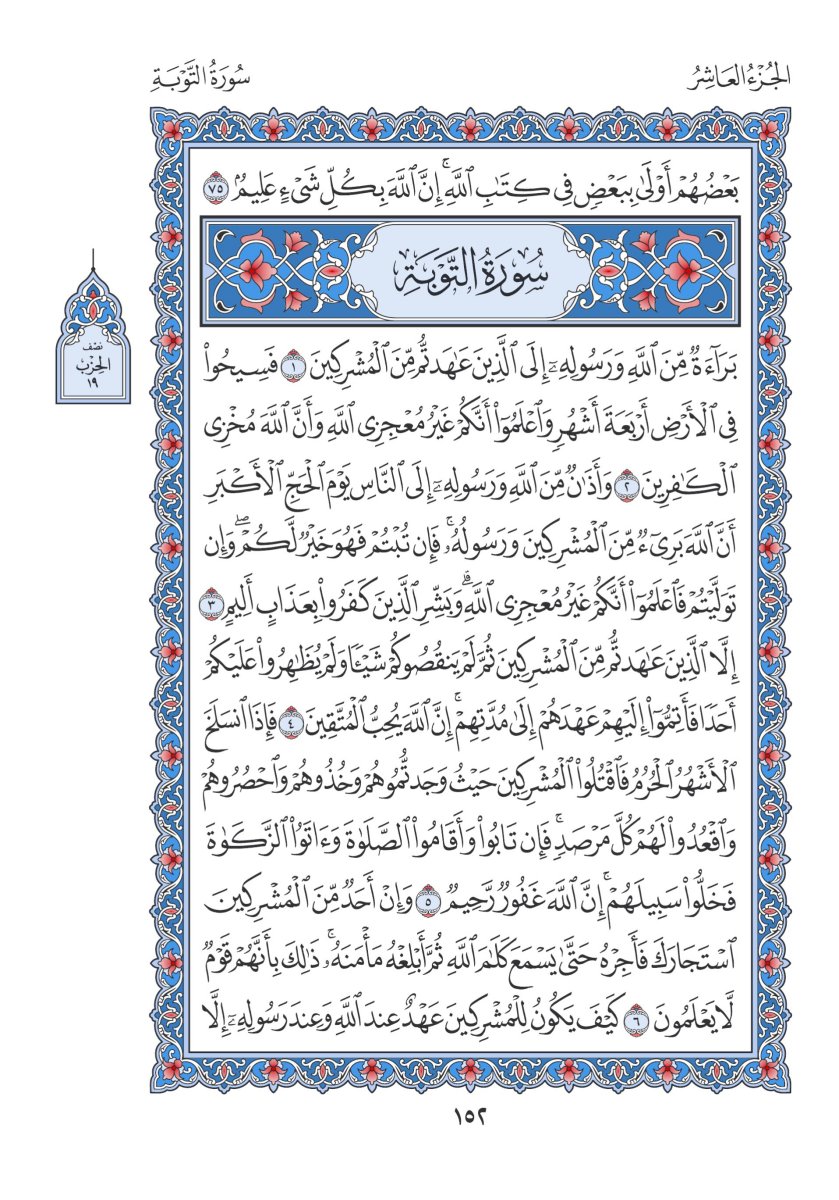 الجُزْءُ العَاشِرُ
سُورَةُ التَّوْبَةِ
بَعْضُهُمْ أَوْلَىٰ بِبَعْضٖ فِي كِتَٰبِ ٱللَّهِۚ إِنَّ ٱللَّهَ بِكُلِّ شَيْءٍ عَلِيمُۢ ٧٥
سُورَةُ التَّوْبَةِ
بَرَآءَةٞ مِّنَ ٱللَّهِ وَرَسُولِهِۦٓ إِلَى ٱلَّذِينَ عَٰهَدتُّم مِّنَ ٱلْمُشْرِكِينَ ١ فَسِيحُواْ
فِي ٱلْأَرْضِ أَرْبَعَةَ أَشْهُرٖ وَٱعْلَمُوٓاْ أَنَّكُمْ غَيْرُ مُعْجِزِي ٱللَّهِ وَأَنَّ ٱللَّهَ مُخْزِي
ٱلْكَٰفِرِينَ ٢ وَأَذَٰنٞ مِّنَ ٱللَّهِ وَرَسُولِهِۦٓ إِلَى ٱلنَّاسِ يَوْمَ ٱلْحَجِّ ٱلْأَكْبَرِ
أَنَّ ٱللَّهَ بَرِيٓءٞ مِّنَ ٱلْمُشْرِكِينَ وَرَسُولُهُۥۚ فَإِن تُبْتُمْ فَهُوَ خَيْرٞ لَّكُمْۖ وَإِن
تَوَلَّيْتُمْ فَٱعْلَمُوٓاْ أَنَّكُمْ غَيْرُ مُعْجِزِي ٱللَّهِۗ وَبَشِّرِ ٱلَّذِينَ كَفَرُواْ بِعَذَابٍ أَلِيمٍ ٣
إِلَّا ٱلَّذِينَ عَٰهَدتُّم مِّنَ ٱلْمُشْرِكِينَ ثُمَّ لَمْ يَنقُصُوكُمْ شَيْـٔٗا وَلَمْ يُظَٰهِرُواْ عَلَيْكُمْ
أَحَدٗا فَأَتِمُّوٓاْ إِلَيْهِمْ عَهْدَهُمْ إِلَىٰ مُدَّتِهِمْۚ إِنَّ ٱللَّهَ يُحِبُّ ٱلْمُتَّقِينَ ٤ فَإِذَا ٱنسَلَخَ
ٱلْأَشْهُرُ ٱلْحُرُمُ فَٱقْتُلُواْ ٱلْمُشْرِكِينَ حَيْثُ وَجَدتُّمُوهُمْ وَخُذُوهُمْ وَٱحْصُرُوهُمْ
وَٱقْعُدُواْ لَهُمْ كُلَّ مَرْصَدٖۚ فَإِن تَابُواْ وَأَقَامُواْ ٱلصَّلَوٰةَ وَءَاتَوُاْ ٱلزَّكَوٰةَ
فَخَلُّواْ سَبِيلَهُمْۚ إِنَّ ٱللَّهَ غَفُورٞ رَّحِيمٞ ٥ وَإِنْ أَحَدٞ مِّنَ ٱلْمُشْرِكِينَ
ٱسْتَجَارَكَ فَأَجِرْهُ حَتَّىٰ يَسْمَعَ كَلَٰمَ ٱللَّهِ ثُمَّ أَبْلِغْهُ مَأْمَنَهُۥۚ ذَٰلِكَ بِأَنَّهُمْ قَوْمٞ
لَّا يَعْلَمُونَ ٦ كَيْفَ يَكُونُ لِلْمُشْرِكِينَ عَهْدٌ عِندَ ٱللَّهِ وَعِندَ رَسُولِهِۦٓ إِلَّا
نصْف
الحِزْب
١٩
١٥٢